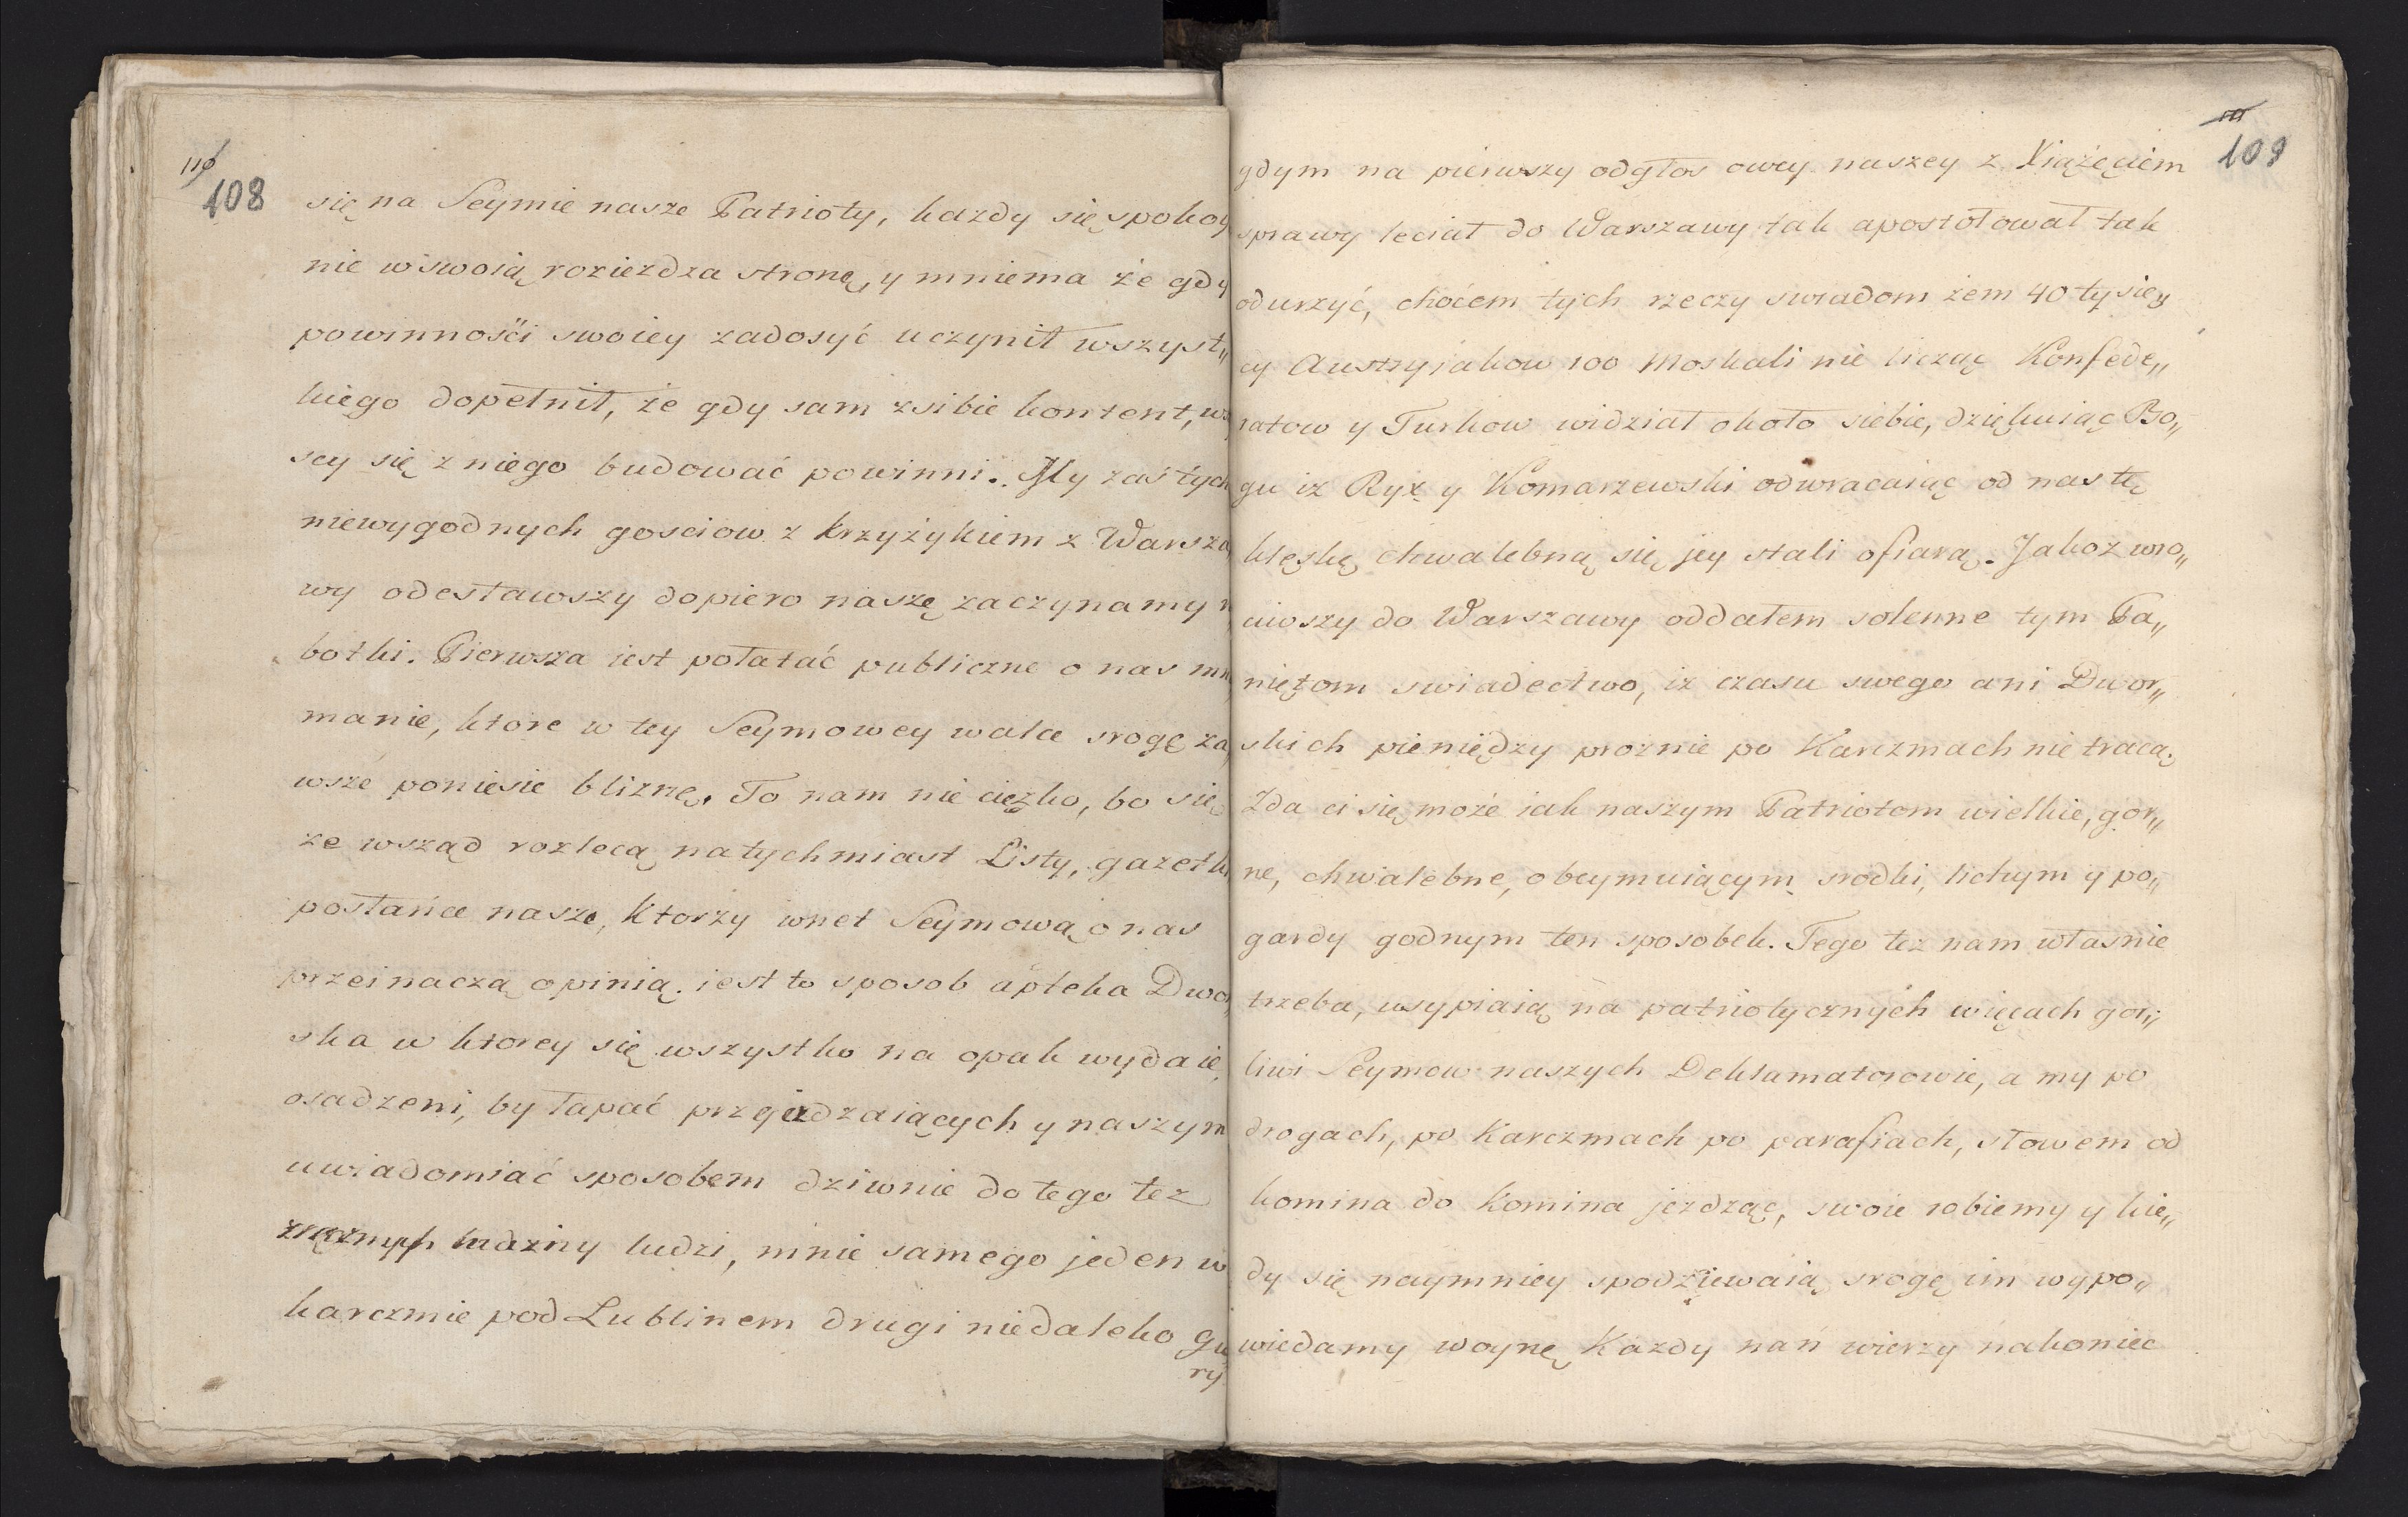 110
108
się na Seymie nasze Patrioty, kazdy się spokoy
nie w swoią roziezdza stronę, y mniema że gdy
powinnośći swoiey zadosyć uczynił wszyst„
kiego dopełnił, że gdy sam z sibie kontent, ws
scy się z niego budować powinni. My zaś tych
niewygodnych gosciow z krzyżykiem z Warsza
wy odesławszy dopiero naszę zaczynamy r
botki. Pierwsza iest połatać publiczne o nas mn
manie, ktore w tey Seymowey walce srogę za
wsze poniesie bliznę. To nam nie ciężko, bo się
ze wsząd rozlecą natychmiast Listy, gazetki
posłańce nasze, ktorzy wnet Seymową o nas
przeinaczą opinią. iest to sposob apteka Dwor
ska w ktorey się wszystko na opak wydaie,
osadzeni, by łapać przejezdzaiących y naszym
uwiadomiać sposobem dziwnie do tego tez
zręcznych mamy ludzi, mnie samego jeden w
karczmie pod Lublinem drugi niedaleko Gu
ry
111
109
gdym na pierwszy odgłos owey naszey z Xiążęciem
sprawy leciał do Warszawy tak apostołował tak
odurzyć, choćem tych rzeczy swiadom żem 40 tysię„
cy Austryjakow 100 Moskali nie licząc Konfede„
ratow y Turkow widział około siebie, dziękuiąc Bo„
gu iz Ryx y Komarzewski odwracaiąc od nas tę
klęskę chwalebną się jey stali ofiarą. Jakoz wro„
ciwszy do Warszawy oddałem solenne tym Pa„
niętom swiadectwo, iz czasu swego ani Dwor„
skich pieniędzy proznie po Karczmach nie tracą.
Zda ci się może iak naszym Patriotom wielkie, gor„
ne, chwalebne, obeymuiącym srodki, lichym y po„
gardy godnym ten sposobek. Tego tez nam własnie
trzeba, usypiaią na patriotycznych więcach gor„
liwi Seymow naszych Deklamatorowie, a my po
drogach, po Karczmach po parafiach, słowem od
komina do Komina jezdząc, swoie robiemy y kie„
dy się naymniey spodziewaią srogę im wypo„
wiedamy woynę Kazdy nań wierzy nakoniec